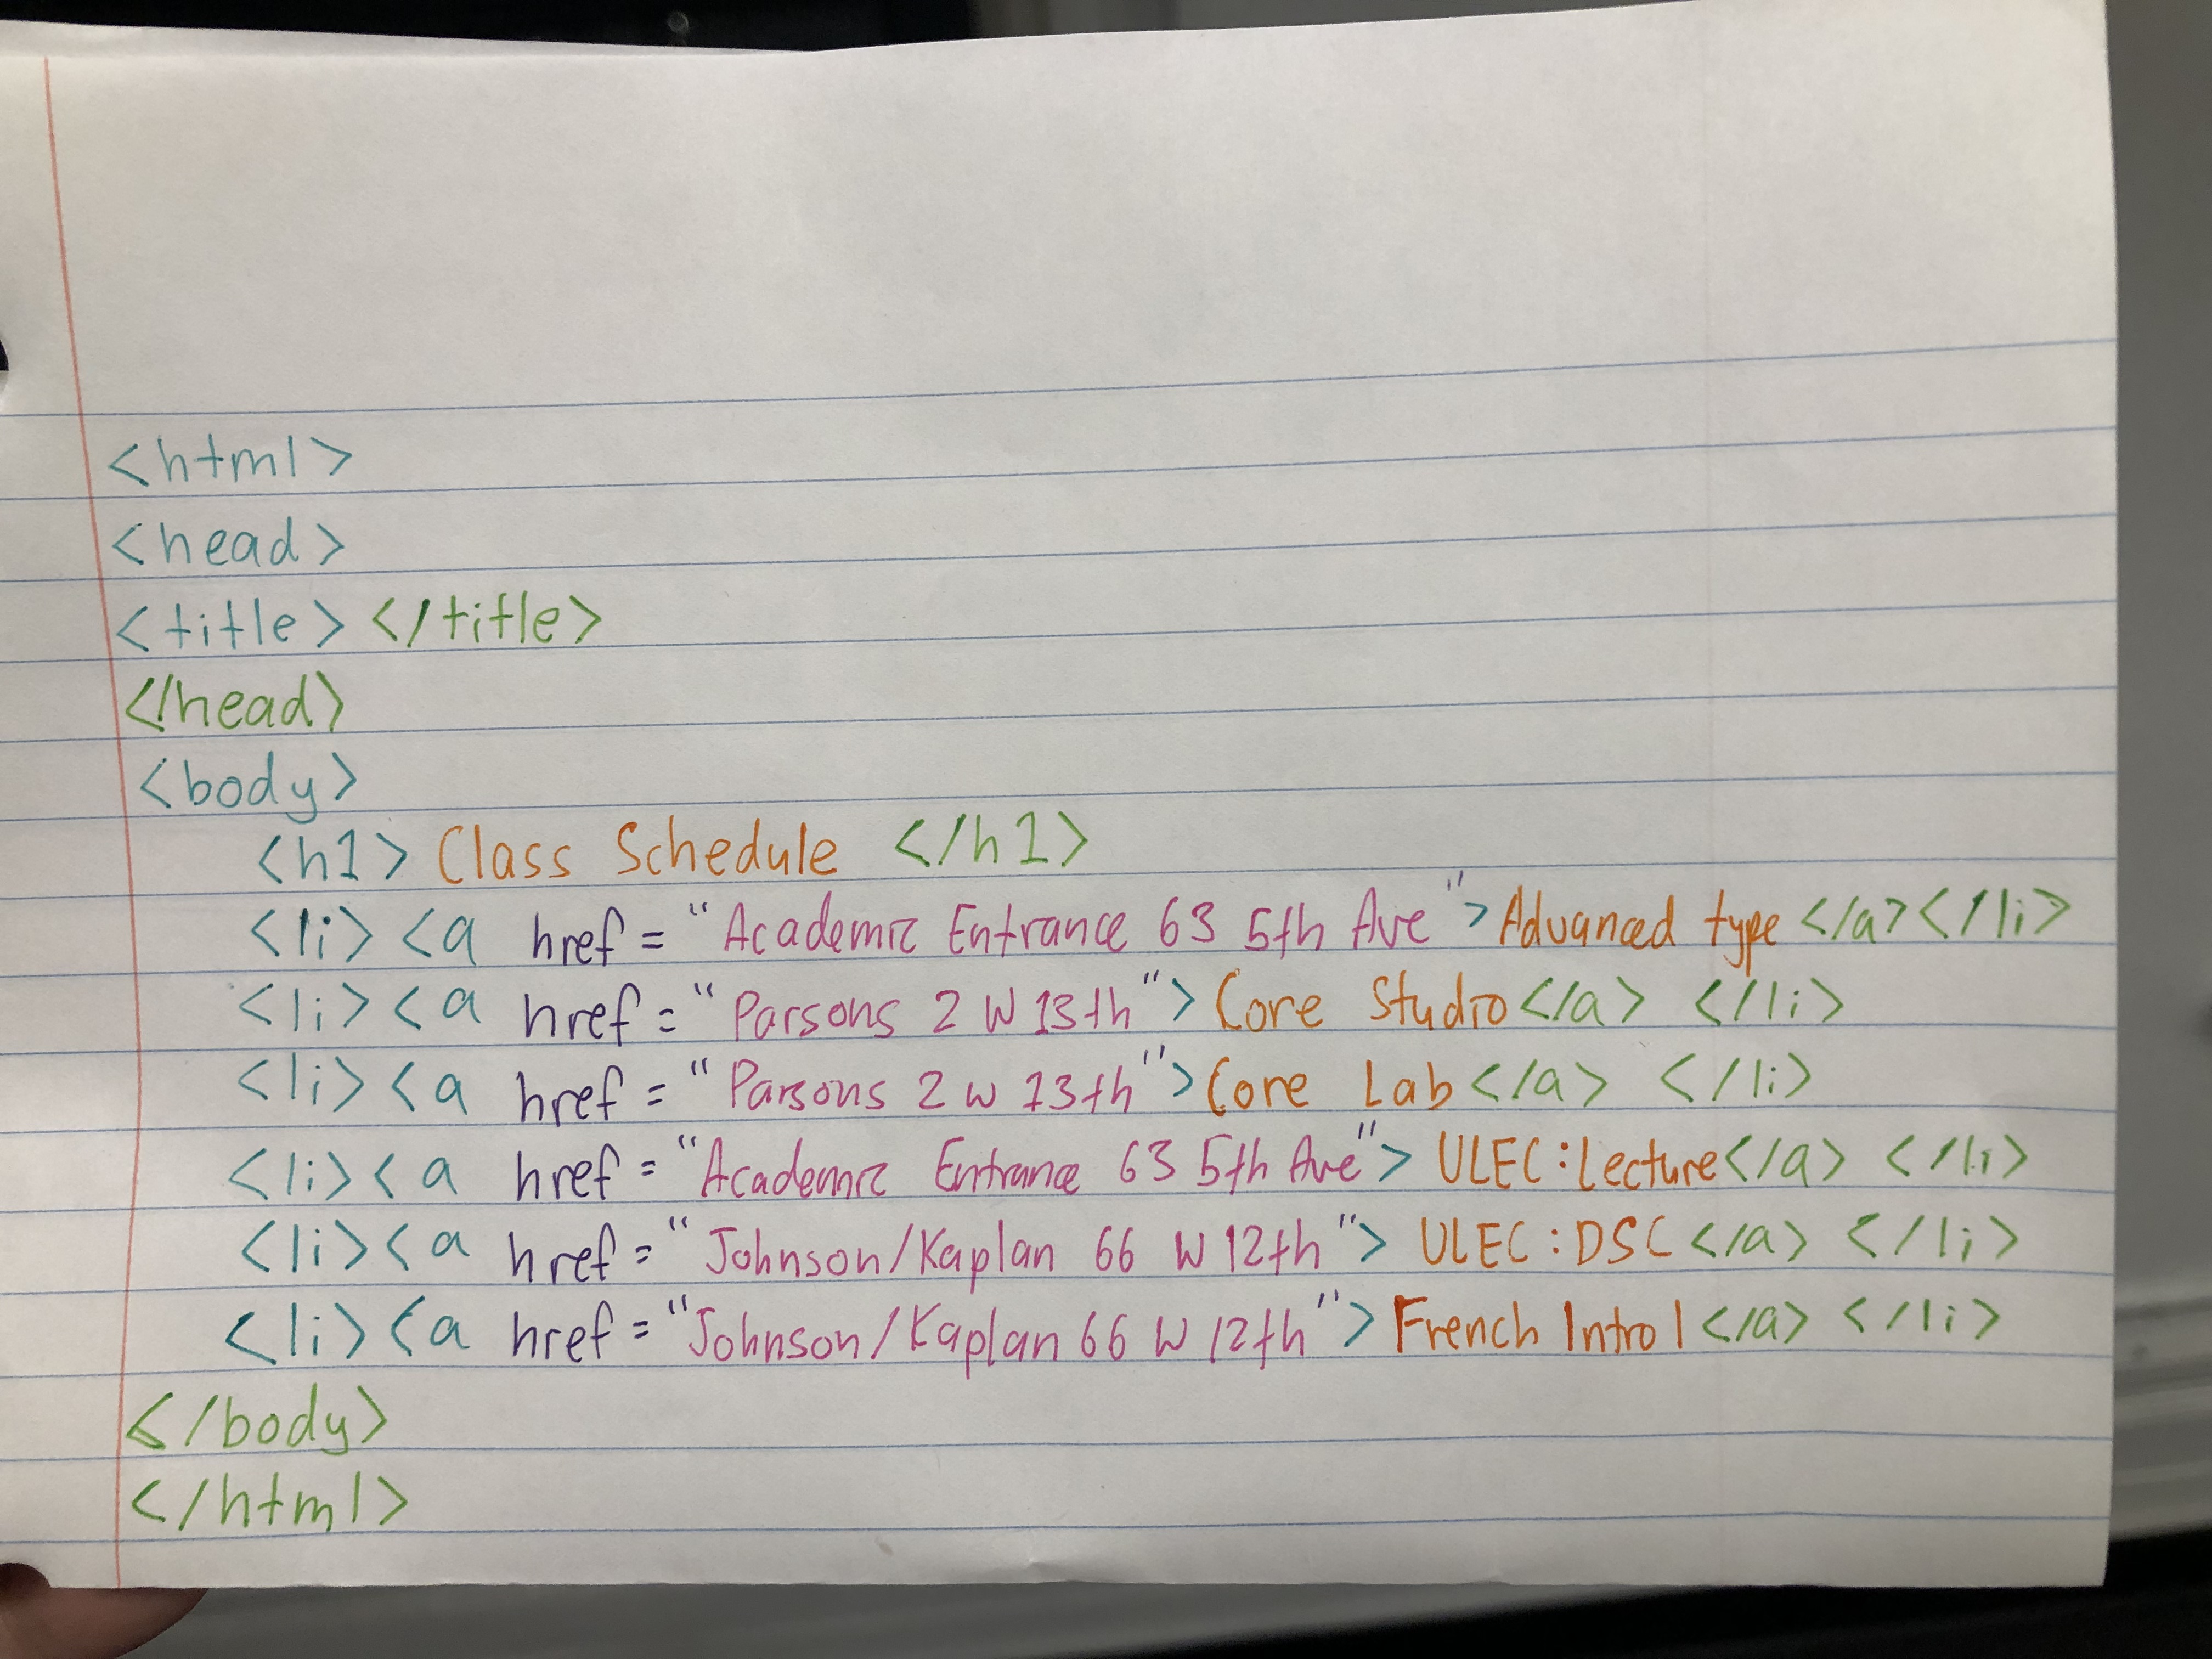 <html>
<head>
<title> </title>
</head>
<body>
<h1> Class Schedule </h1>
<li> <a href = "Academic Entrance 63 5th Ave"> Advanced type </a> </li>
<li> <a href = "Parsons 2 W 13th"> Core Studio </a> </li>
<li> <a href = "Parsons 2 W 13th"> Core Lab </a> </li>
<li> <a href = "Academic Entrance 63 5th Ave"> ULEC: Lecture </a> </li>
<li> <a href = "Johnson/Kaplan 66 W 12th"> ULEC: DSC </a> </li>
<li> <a href = "Johnson/Kaplan 66 W 12th"> French Intro 1 </a> </li>
</body>
</html>